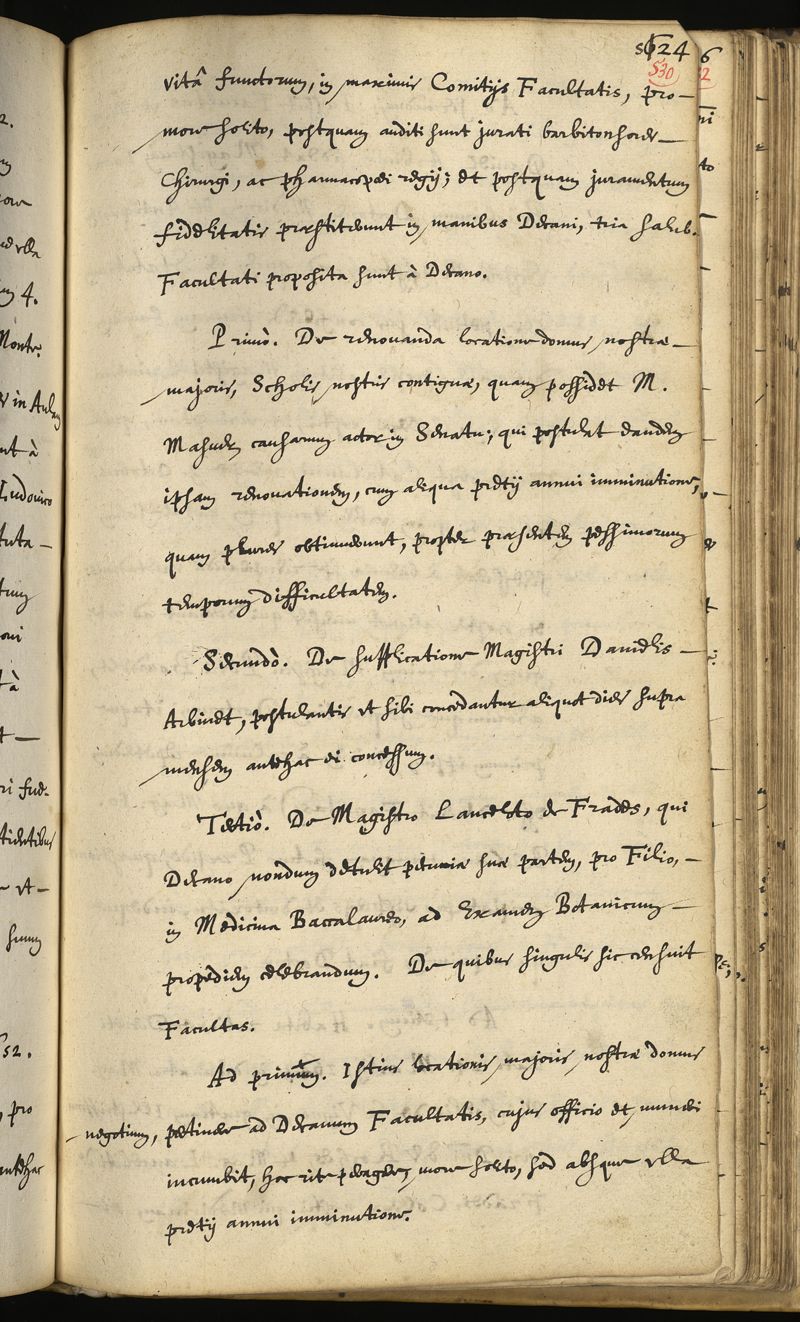 524
530
vitâ functorum, in maximis Comitijs Facultatis, pro-
more solito, postquam auditi sunt jurati barbitonsores
Chirurgi, ac pharmacopœi regij; et postquam juramentum
fidelitatis præstiterunt in manibus Decani, tria salub.
Facultati proposita sunt à Decano.
Primò. De renouanda locatione domus nostræ
majoris, Scholis nostris contiguæ, quam possidet M.
Masuer causarum actor in Senatu; qui postulat eandem
ipsam renouationem, cum aliqua pretij annui imminutione,
quam plures obtinuerunt, propter præsentem pessimorum
temporum difficultatem.
Secundò. De supplicatione Magistri Danielis
Arbinet, postulantis vt sibi concedantur aliquot dies supra
mensem antehac ei concessum.
Tertiò. De Magistro Lanceloto de Frades, qui
Decano nondum detulit pecuniæ suæ partem, pro Filio,
in Medicina Baccalaureo, ad Examen Botanicum
propediem celebrandum. De quibus singulis sic censuit
Facultas.
Ad primum. Istius locationis majoris nostræ domus
negotium, pertinere ad Decanum Facultatis, cujus officio et muneri
incumbit, hoc rite peragere, more solito, sed absque vlla
pretij annui imminutione.